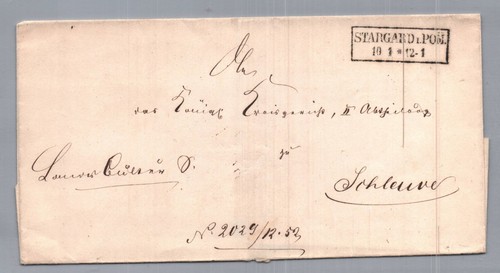 STARGARD i. POM.
10 4 * 12-1
An
das Königl. Kreisgericht, II Abtheilung
zu
Schlawe
No. 2029/12.52